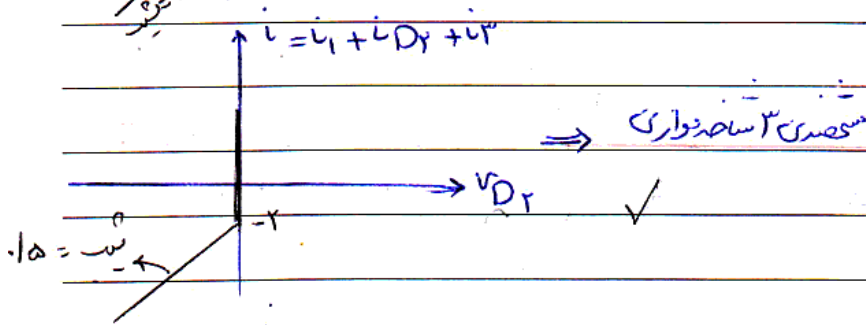 شیب
i = i₁ + iD₂ + i₃
⇒ مشخصه‌ی ۳ شاخه موازی
vD₂ ✓
-۲
شیب = ۰/۵